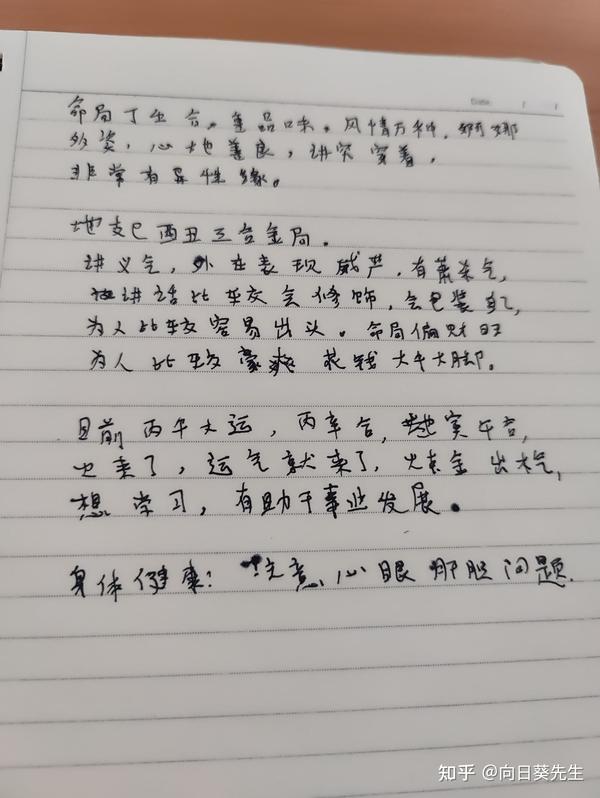 Date / /
命局丁壬合。重品味。风情万种,婀娜
多姿,心地善良,讲究穿着,
非常有异性缘。
地支巳酉丑三合金局。
讲义气,外在表现威严,有萧杀气,
讲话比较会修饰,会包装自己,
为人比较容易出头。命局偏财旺
为人比较豪爽 花钱大手大脚。
目前丙午大运,丙辛合,寅午合,
也来了,运气就来了,火克金出大气,
想学习,有助于事业发展。
身体健康:注意心眼肝胆问题.
知乎 @向日葵先生